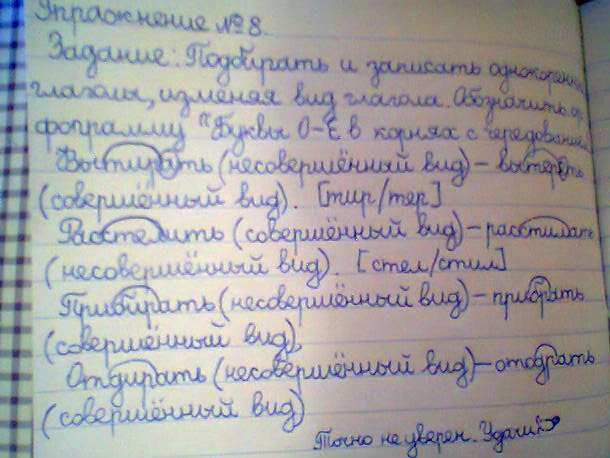 Упражнение №8.
Задание: Подбирать и записать однокоренные
глаголы, изменяя вид глагола. Обозначить ор
фограмму "Буквы О-Е в корнях с чередованием
Вытирать (несовершённый вид) - вытереть
(совершённый вид). [тир/тер]
Расстелить (совершённый вид) - расстилать
(несовершённый вид). [стел/стил]
Прибирать (несовершённый вид) - прибрать
(совершённый вид),
Отдирать (несовершённый вид) - отодрать
(совершённый вид)
Точно не уверен. Удачи